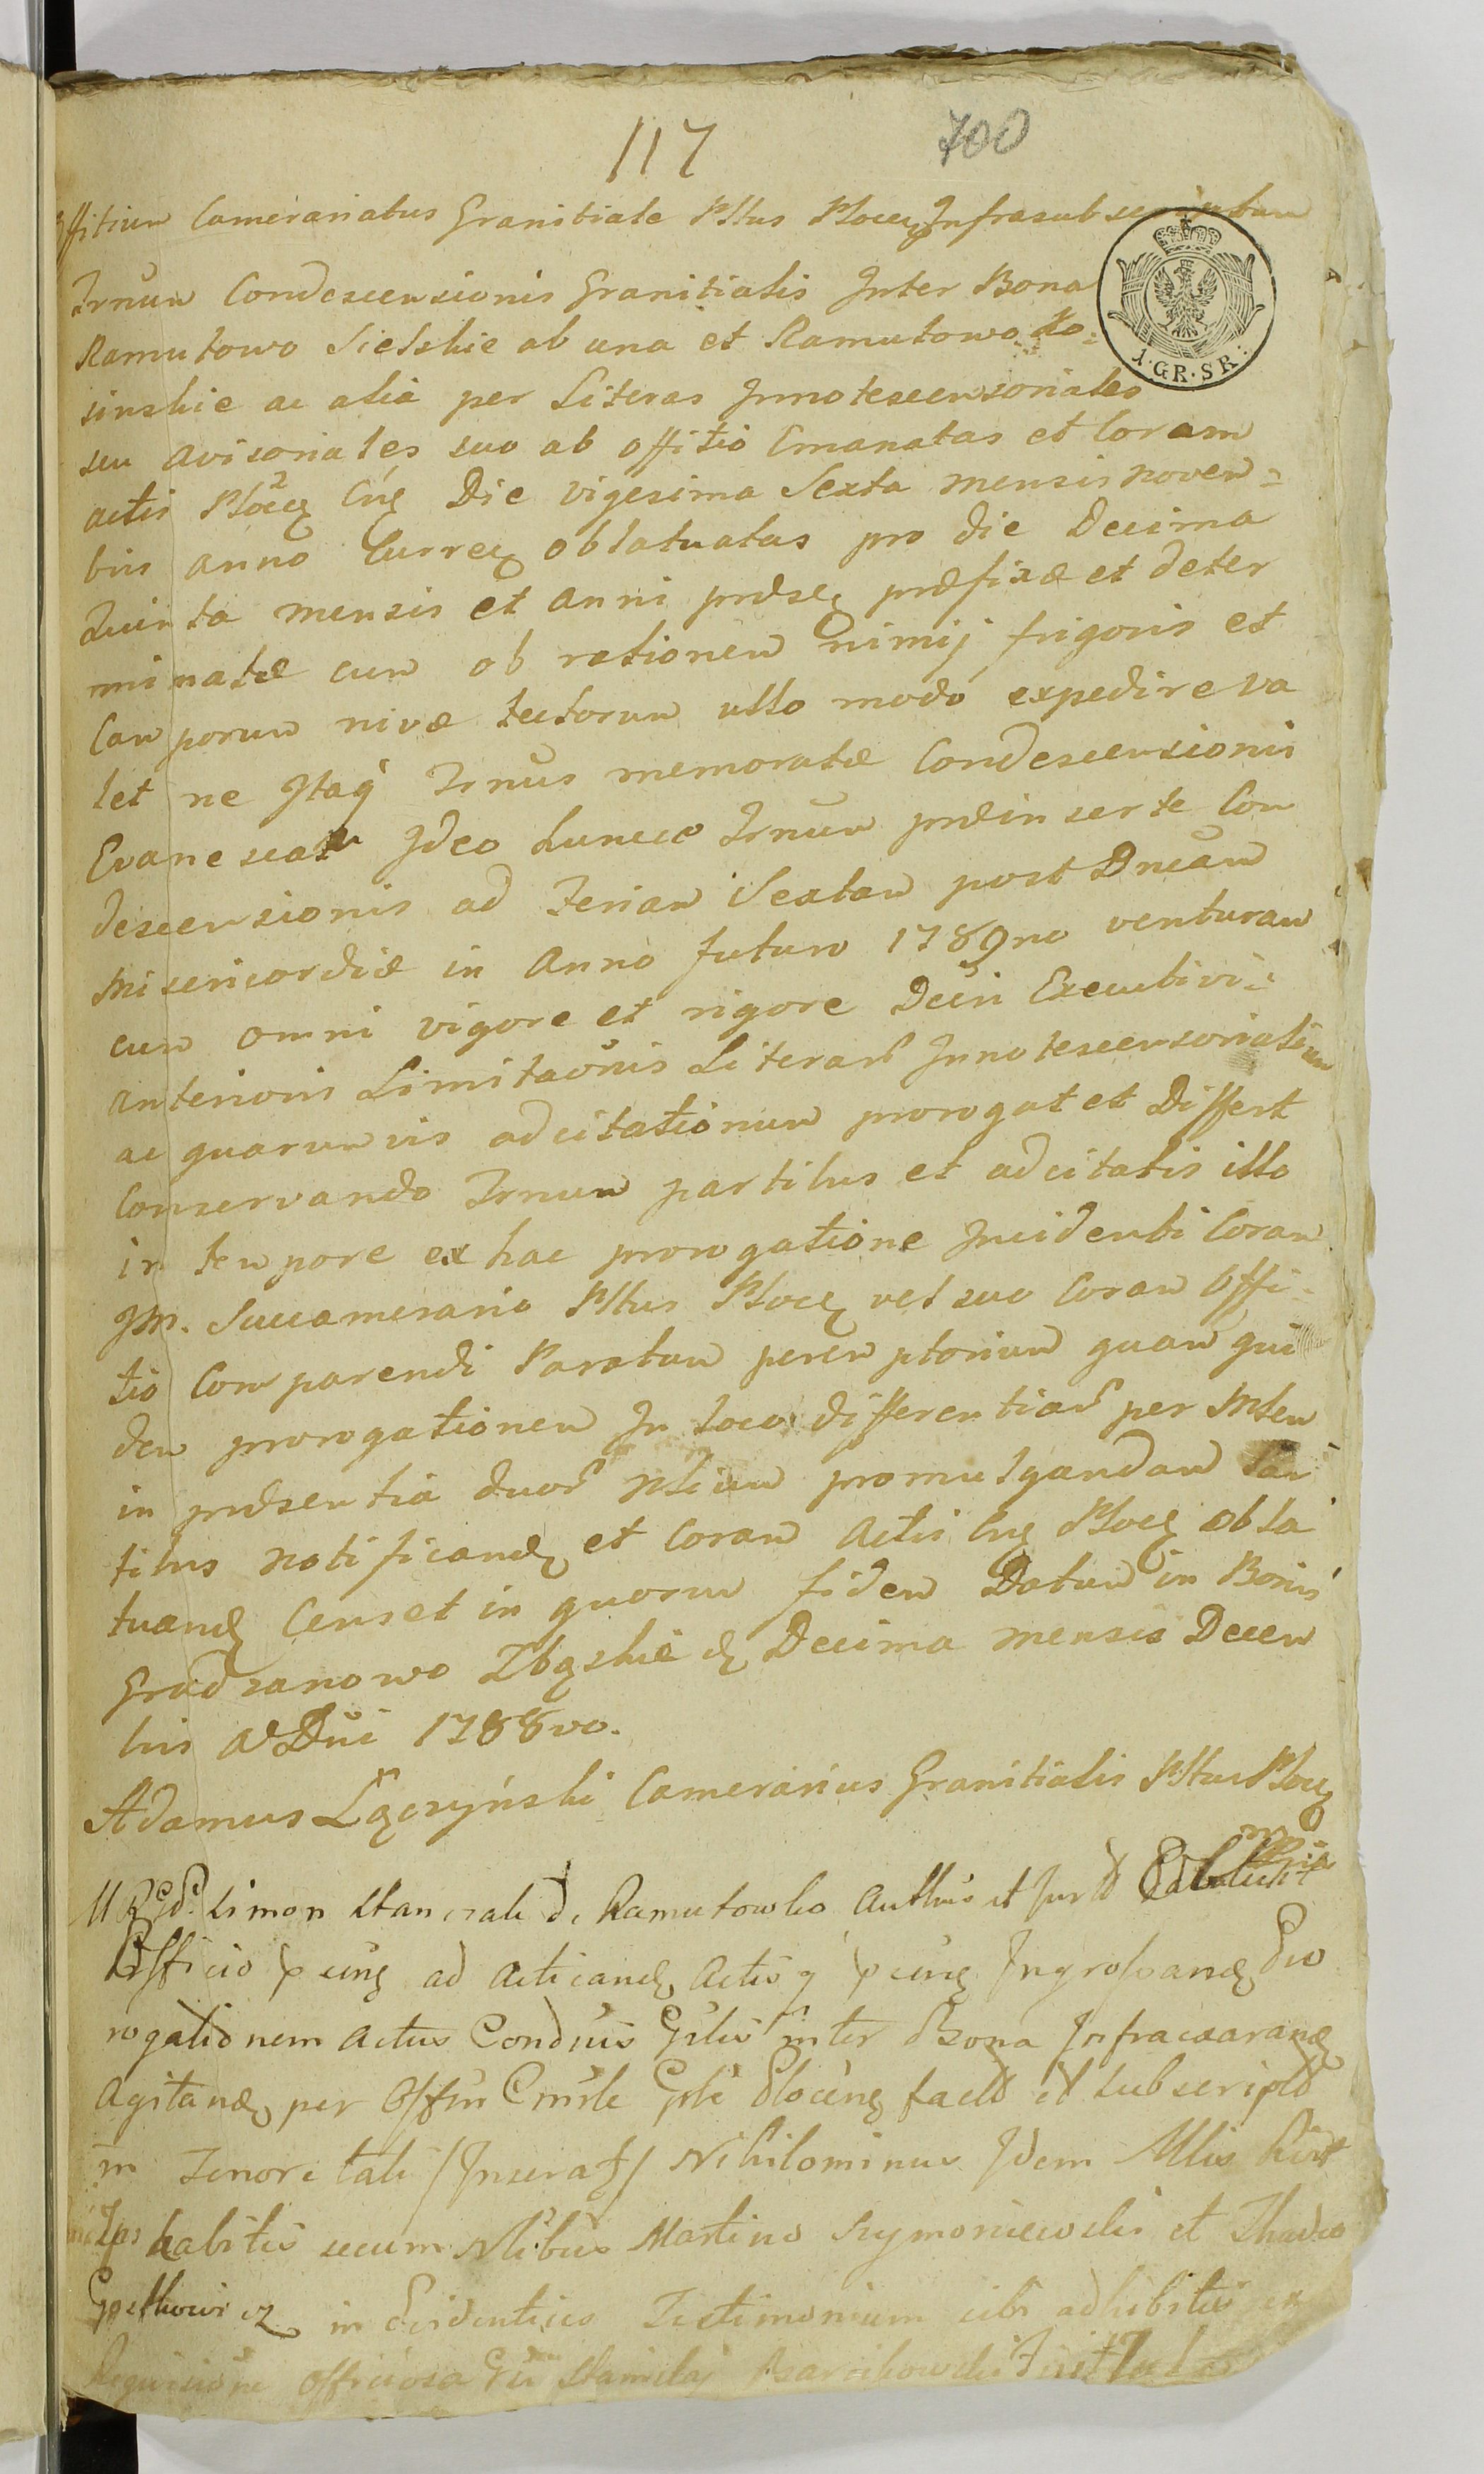 117 700
Offitium Camerariatus Granitiale Pltus Plocę Infrasubscriptum
Trnum Condescensionis Granitialis Inter Bona
Ramutowo Sielskie ab una et Ramutowo Ko=
sinskie ac alia per Literas Innotescensoriales
seu avisoriales suo ab offitio Emanatas et Coram
actis Plocę Cnę Die vigesima Sexta mensis novem=
bris anno Curreę oblatuatas pro die Decima
Quinta mensis et anni præseę præfixæ et deter
minatæ cum ob rationem nimij frigoris et
Camporum nivæ tectorum ullo modo expedire va
let ne Itaq Trnus memoratæ Condescensionis
Evanescat Ideo huncce Trnum præinserte Con
descensionis ad Feriam Sextam post Dncam
Misericordiæ in Anno futuro 1789no venturam
cum omni vigore et rigore Decri Executivi=
anterioris Limitaonis Literar Innotescensorialium
ac quarumvis adcitationum prorogat et Differt
Conservando Trnum partibus et adcitatis illo
in tempore ex hac prorogatione Incidenti Coram
JM. Succamerario Pltus Plocę vel suo Coram Offi=
tio Comparendi Paratum peremptorium quam qui
dem prorogationem In loco differentiar per Mlem
in præsentia duor Nlium promulgandam Par
tibus notificandę et Coram Actis Cnę Plocę obla
tuandę Censet in quorum fidem Datum in Bonis
Gradzanowo Zbęskie dę Decima mensis Decem
bris A Dni 1788vo.
Adamus Łączyński Camerarius Granitialis Pltus Plocę
mpria
Simon de Ramutowko Authus et Jur
Officio ad acticandę Actisq Ingrossandę Pro
rogationem actus Condnis Gżlis inter Bona Infraexarandę
Agitandę per Offm Cmrle Gżle Plocenę factd et subscriptd
in Tenore tali /Inserat/ Nihilominus Idem Mlis
habitis secum Nlibus Martino Szymoniewski et Thadeo
in Evidentius Testimonium sibi adhibitis
Requisione officiosa
1·GR·SR: